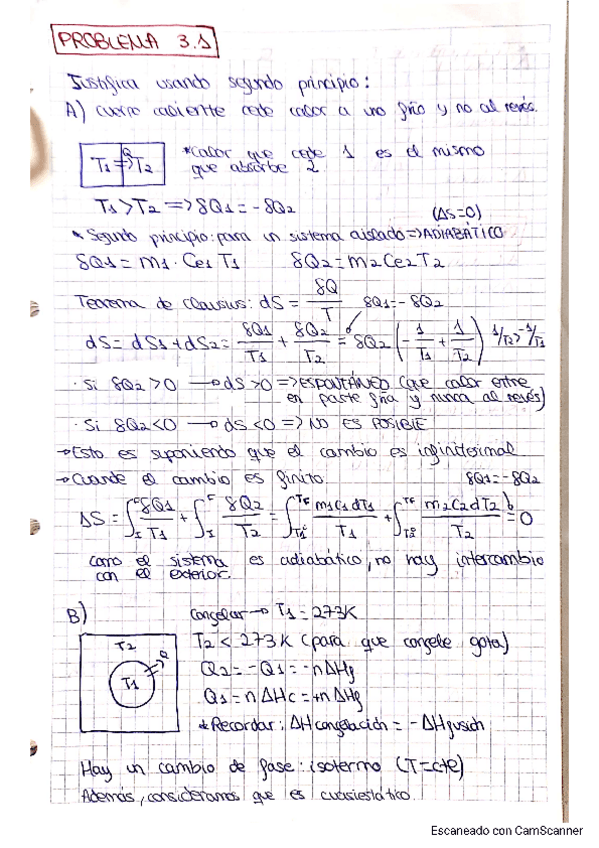 PROBLEMA 3.1
Justifica usando segundo principio:
A) cuerpo caliente cede calor a uno frío y no al revés.
T1 Q=> T2
*Calor que cede 1 es el mismo
que absorbe 2
T1 > T2 => δQ1 = -δQ2
(ΔS=0)
* Segundo principio: para un sistema aislado => ADIABÁTICO
δQ1 = m1 · Ce1 T1 δQ2 = m2 Ce2 T2
Teorema de Clausius: dS = δQ/T δQ1 = -δQ2
dS = dS1 + dS2 = δQ1/T1 + δQ2/T2 = δQ2 (-1/T1 + 1/T2) 1/T2 > -1/T1
· Si δQ2 > 0 → dS > 0 => ESPONTÁNEO (que calor entre
en parte fría y nunca al revés)
· Si δQ2 < 0 → dS < 0 => NO ES POSIBLE
→ Esto es suponiendo que el cambio es infinitesimal
→ Cuando el cambio es finito. δQ1 = -δQ2
ΔS = ∫ δQ1/T1 + ∫ δQ2/T2 = ∫ m1c1dT1/T1 + ∫ m2c2dT2/T2 = 0
como el sistema es adiabático, no hay intercambio
con el exterior.
B) Congelar → T1 = 273K
T2
T1
Q
T2 < 273K (para que congele gota)
Q2 = -Q1 = -nΔHf
Q1 = nΔHc = +nΔHf
*Recordar: ΔHcongelación = -ΔHfusión
Hay un cambio de fase: isotermo (T=cte)
Además, consideramos que es cuasiestático.
Escaneado con CamScanner